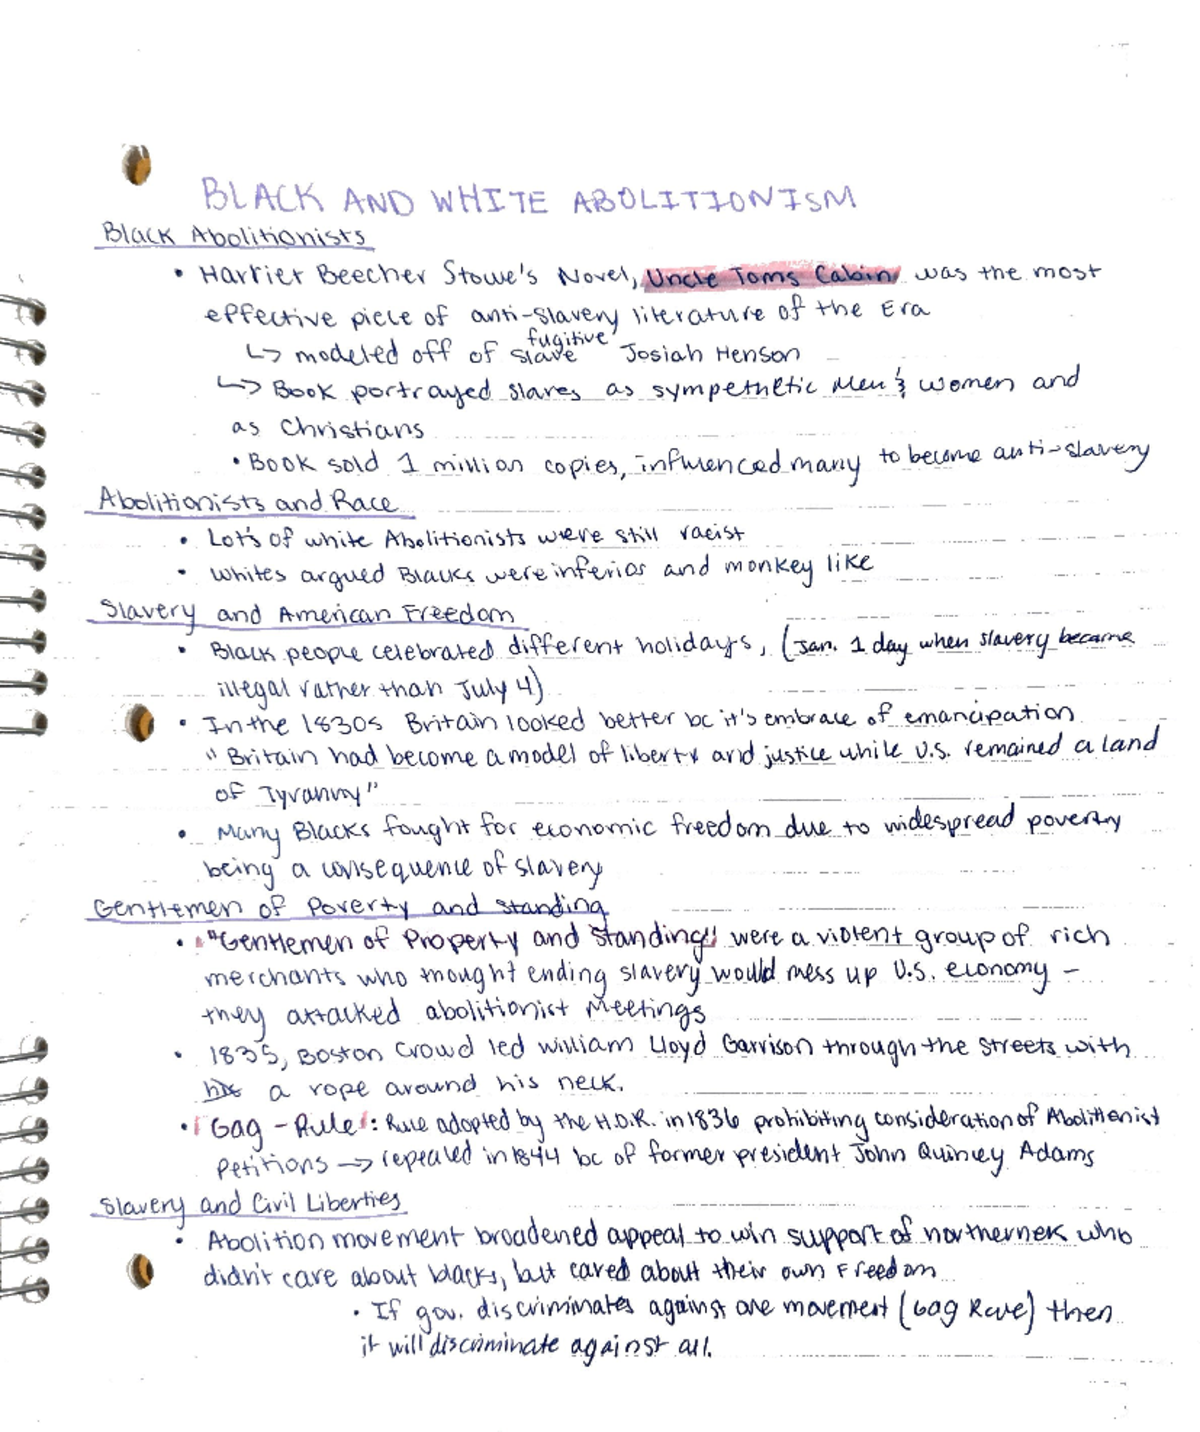 BLACK AND WHITE ABOLITIONISM
Black Abolitionists
• Harrier Beecher Stowe's Novel, Uncle Toms Cabin was the most
effective piece of anti-slavery literature of the Era
fugitive
↳ modeled off of slave Josiah Henson
↳ Book portrayed slaves as sympethetic Men & women and
as Christians
• Book sold 1 million copies, influenced many to become anti-slavery
Abolitionists and Race
• Lots of white Abolitionists were still racist
• Whites argued Blacks were inferior and monkey like
Slavery and American Freedom
• Black people celebrated different holidays, (Jan. 1 day when slavery became
illegal rather than July 4)
• In the 1830s Britain looked better bc it's embrace of emancipation
"Britain had become a model of liberty and justice while U.S. remained a land
of Tyranny"
• Many Blacks fought for economic freedom due to widespread poverty
being a consequence of slavery
Gentlemen of Poverty and Standing
• "Gentlemen of Property and Standing" were a violent group of rich
merchants who thought ending slavery would mess up U.S. economy –
they attacked abolitionist Meetings
• 1835, Boston Crowd led William Lloyd Garrison through the streets with
a rope around his neck.
• Gag - Rule: Rule adopted by the H.O.R. in 1836 prohibiting consideration of Abolitionist
Petitions → repealed in 1844 bc of former president John Quincy Adams
Slavery and Civil Liberties
• Abolition movement broadened appeal to win support of northerners who
didn't care about blacks, but cared about their own Freedom
• If gov. discriminates against one movement (Gag Rule) then
it will discriminate against all.